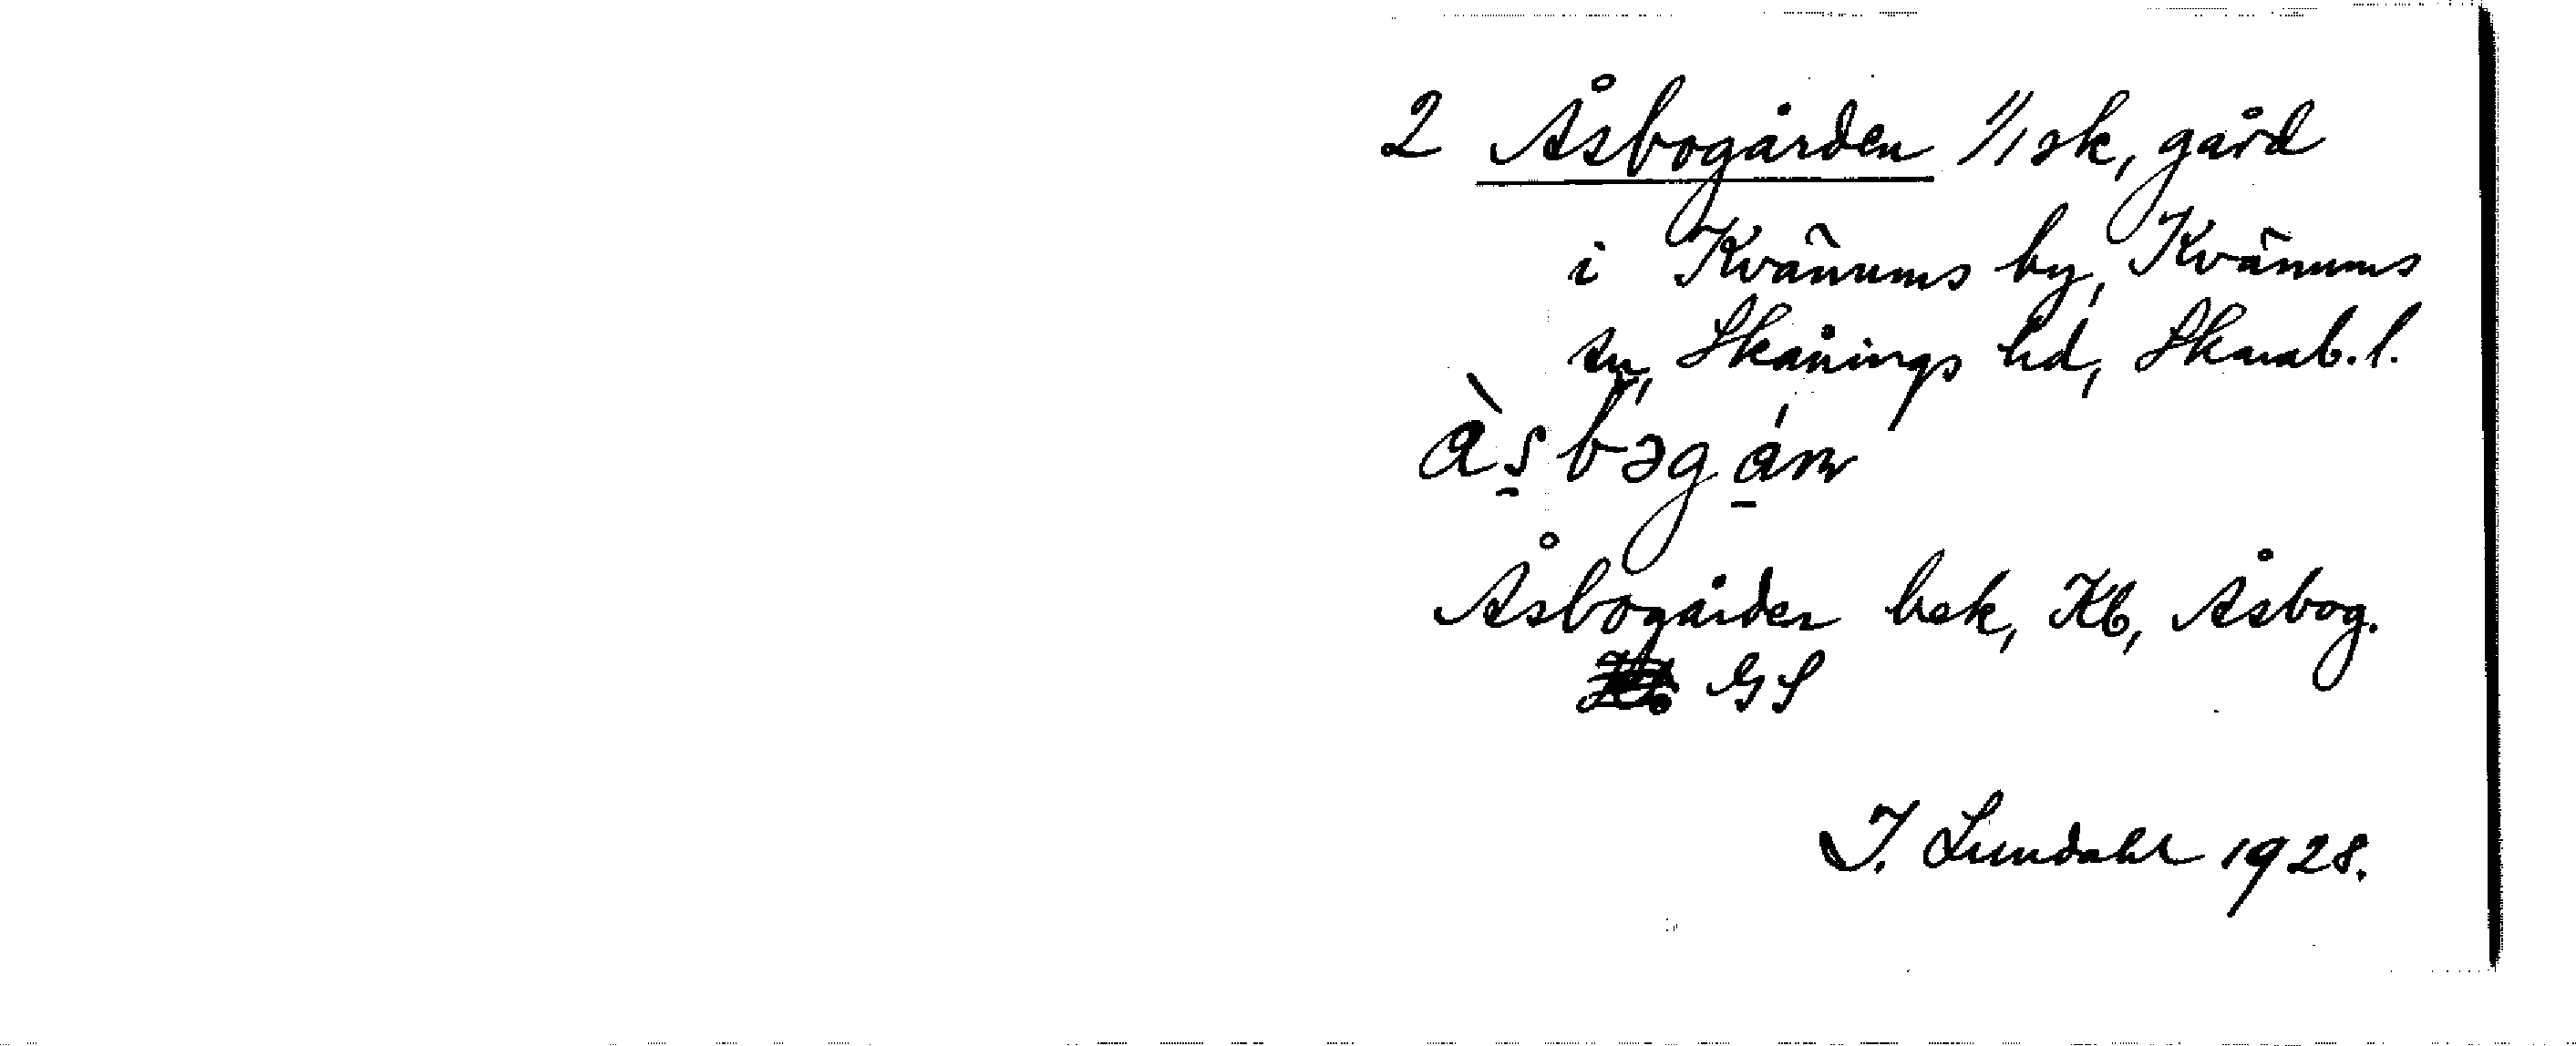 2 Åsbogården 1/1 sk, gård
i Kvänums by, Kvänums
sn, Skånings hd, Skarab. l.
àsbəgán
Åsbogården bek, Kb, Åsbog.
GS
I. Lundahl 1928.